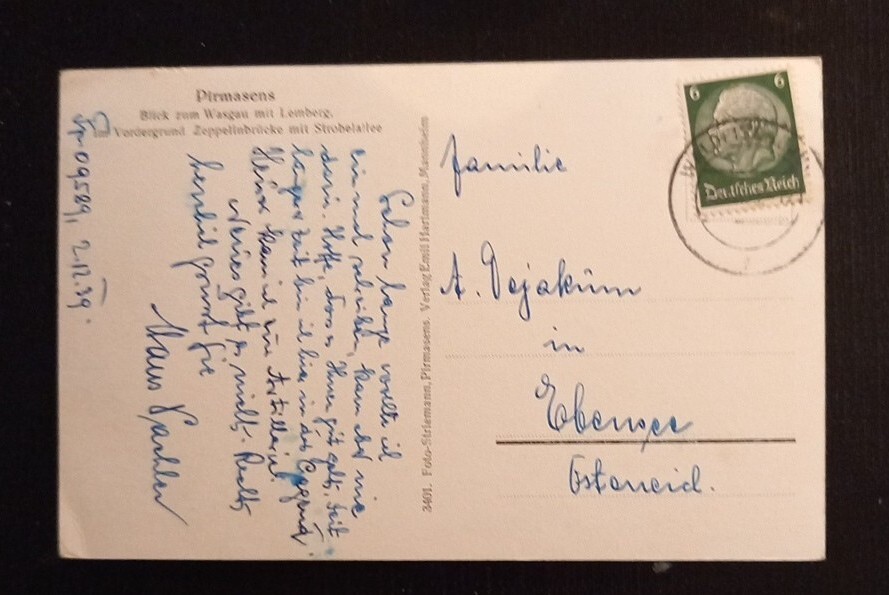 Pirmasens
Blick zum Wasgau mit Lemberg,
im Vordergrund Zeppelinbrücke mit Strobelallee
09589, 2.12.39.
Schon lange wollte ich
einmal schreiben, kam aber nie
dazu. Hoffe, dass es Ihnen gut geht. Seit
längerer Zeit bin ich hier in der Gegend.
kam ich zur Artillerie.
Neues gibt es nicht. Recht
herzlich grüsst Sie
Hans
3401. Foto-Striemann, Pirmasens. Verlag Emil Hartmann, Mannheim
6 6
Deutsches Reich
Familie
A. Dejakum
in
Ebensee
Österreich.